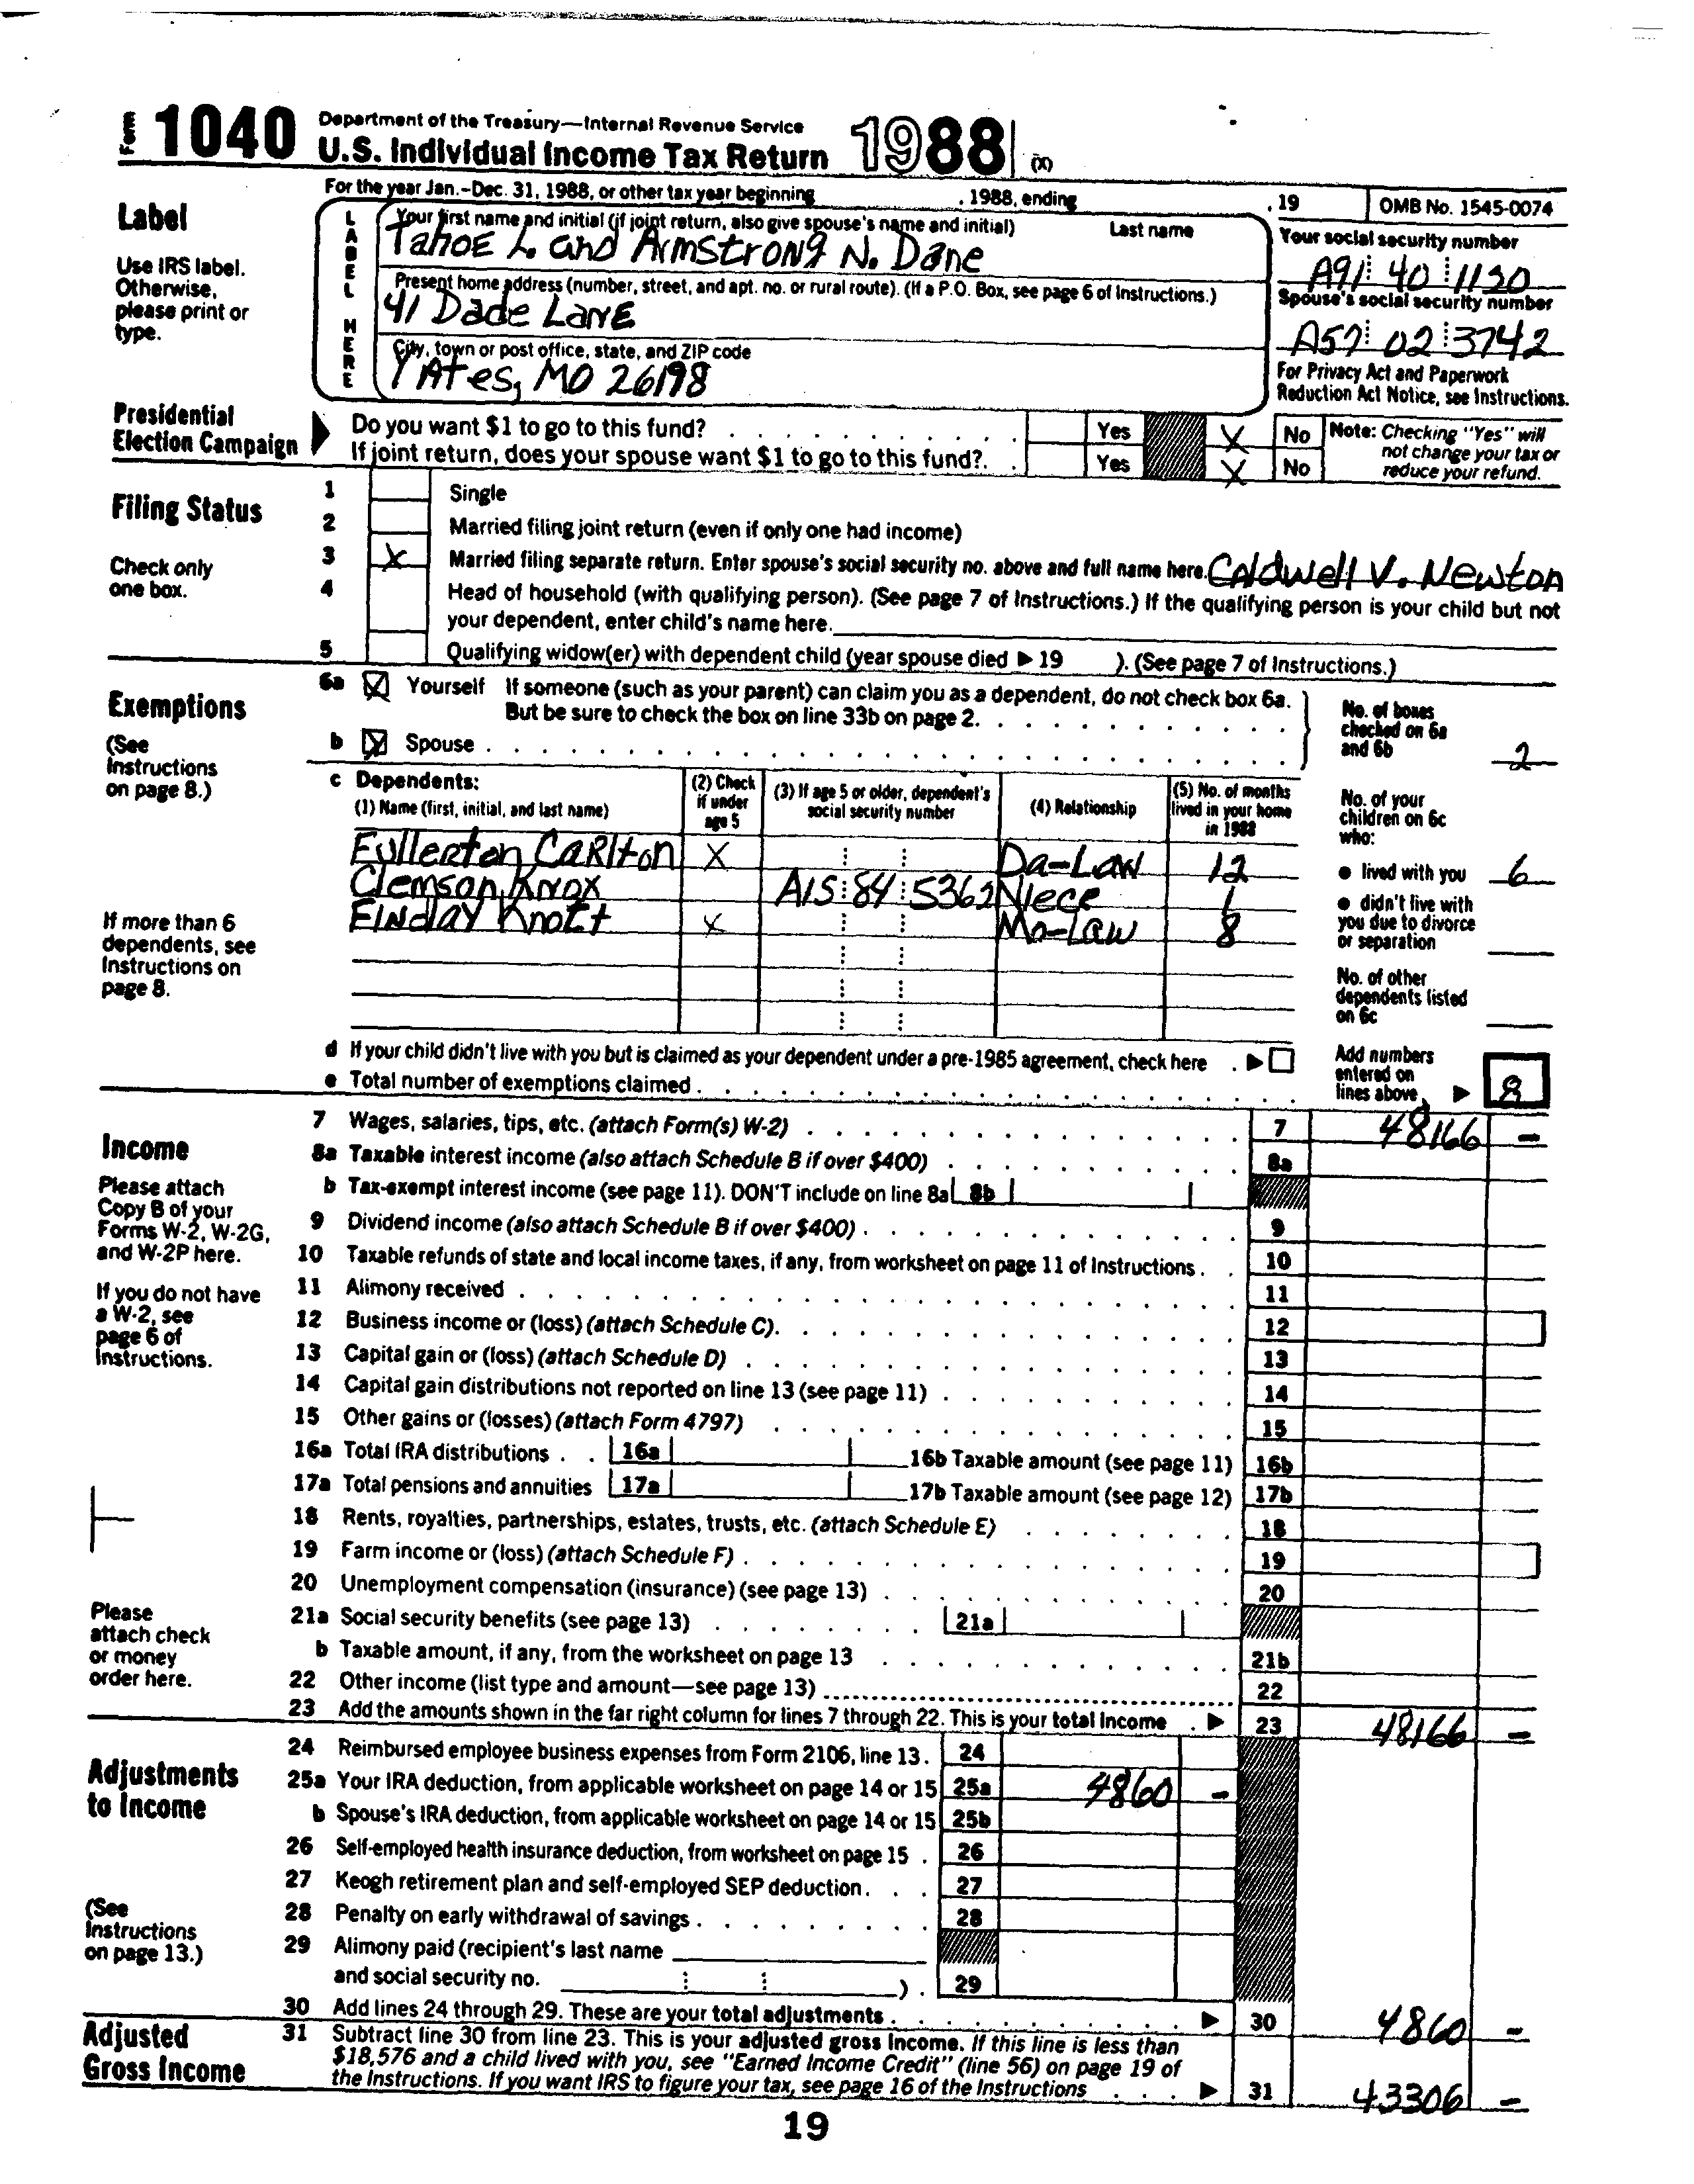 Form 1040 Department of the Treasury—Internal Revenue Service
U.S. Individual Income Tax Return 1988 (X)
For the year Jan.–Dec. 31, 1988, or other tax year beginning , 1988, ending , 19 OMB No. 1545-0074
Label
Use IRS label. Otherwise, please print or type.
LABEL HERE
Your first name and initial (if joint return, also give spouse's name and initial) Last name
Tahoe L. and Armstrong N. Dane
Your social security number
A91 40 1120
Present home address (number, street, and apt. no. or rural route). (If a P.O. Box, see page 6 of Instructions.)
41 Dade Lane
Spouse's social security number
A57 02 3742
City, town or post office, state, and ZIP code
Yates, MO 26198
For Privacy Act and Paperwork
Reduction Act Notice, see Instructions.
Presidential
Election Campaign
Do you want $1 to go to this fund? Yes X No
If joint return, does your spouse want $1 to go to this fund?. Yes X No
Note: Checking "Yes" will
not change your tax or
reduce your refund.
Filing Status
Check only
one box.
1 Single
2 Married filing joint return (even if only one had income)
3 X Married filing separate return. Enter spouse's social security no. above and full name here. Caldwell V. Newton
4 Head of household (with qualifying person). (See page 7 of Instructions.) If the qualifying person is your child but not
your dependent, enter child's name here.
5 Qualifying widow(er) with dependent child (year spouse died ▶ 19 ). (See page 7 of Instructions.)
Exemptions
(See
Instructions
on page 8.)
6a X Yourself If someone (such as your parent) can claim you as a dependent, do not check box 6a.
But be sure to check the box on line 33b on page 2.
b X Spouse
No. of boxes
checked on 6a
and 6b 2
c Dependents:
(1) Name (first, initial, and last name)
(2) Check
if under
age 5
(3) If age 5 or older, dependent's
social security number
(4) Relationship
(5) No. of months
lived in your home
in 1988
Fullerton Carlton X Da-Law 12
Clemson Knox A15 84 5362 Niece 1
Findlay Knott X Mo-Law 8
No. of your
children on 6c
who:
● lived with you 6
● didn't live with
you due to divorce
or separation
No. of other
dependents listed
on 6c
If more than 6
dependents, see
Instructions on
page 8.
d If your child didn't live with you but is claimed as your dependent under a pre-1985 agreement, check here . ▶
e Total number of exemptions claimed
Add numbers
entered on
lines above ▶ 8
Income
Please attach
Copy B of your
Forms W-2, W-2G,
and W-2P here.
If you do not have
a W-2, see
page 6 of
Instructions.
7 Wages, salaries, tips, etc. (attach Form(s) W-2) 7 48166 –
8a Taxable interest income (also attach Schedule B if over $400) 8a
b Tax-exempt interest income (see page 11). DON'T include on line 8a 8b
9 Dividend income (also attach Schedule B if over $400) 9
10 Taxable refunds of state and local income taxes, if any, from worksheet on page 11 of Instructions 10
11 Alimony received 11
12 Business income or (loss) (attach Schedule C). 12
13 Capital gain or (loss) (attach Schedule D) 13
14 Capital gain distributions not reported on line 13 (see page 11) 14
15 Other gains or (losses) (attach Form 4797) 15
16a Total IRA distributions 16a 16b Taxable amount (see page 11) 16b
17a Total pensions and annuities 17a 17b Taxable amount (see page 12) 17b
18 Rents, royalties, partnerships, estates, trusts, etc. (attach Schedule E) 18
19 Farm income or (loss) (attach Schedule F) 19
20 Unemployment compensation (insurance) (see page 13) 20
21a Social security benefits (see page 13) 21a
b Taxable amount, if any, from the worksheet on page 13 21b
22 Other income (list type and amount—see page 13) 22
23 Add the amounts shown in the far right column for lines 7 through 22. This is your total income ▶ 23 48166 –
Please
attach check
or money
order here.
Adjustments
to Income
(See
Instructions
on page 13.)
24 Reimbursed employee business expenses from Form 2106, line 13. 24
25a Your IRA deduction, from applicable worksheet on page 14 or 15 25a 4860 –
b Spouse's IRA deduction, from applicable worksheet on page 14 or 15 25b
26 Self-employed health insurance deduction, from worksheet on page 15 . 26
27 Keogh retirement plan and self-employed SEP deduction 27
28 Penalty on early withdrawal of savings 28
29 Alimony paid (recipient's last name
and social security no. ) . 29
30 Add lines 24 through 29. These are your total adjustments ▶ 30 4860 –
Adjusted
Gross Income
31 Subtract line 30 from line 23. This is your adjusted gross income. If this line is less than
$18,576 and a child lived with you, see "Earned Income Credit" (line 56) on page 19 of
the Instructions. If you want IRS to figure your tax, see page 16 of the Instructions ▶ 31 43306 –
19